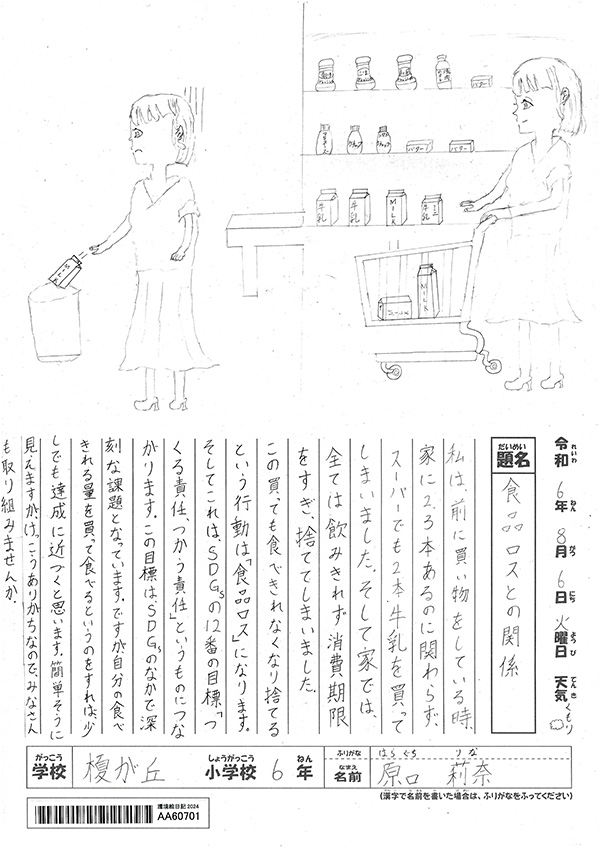 牛乳
牛乳
MILK
牛乳
バター
バター
MILK
MILK
令和 6年 8月 6日 火曜日 天気 くもり
れいわ ねん がつ にち ようび てんき
だいめい
題名
食品ロスとの関係
私は、前に買い物をしている時、
家に2、3本あるのに関わらず、
スーパーでも2本、牛乳を買って
しまいました。そして家では、
全ては飲みきれず消費期限
をすぎ、捨ててしまいました。
この買っても食べきれなくなり捨てる
という行動は「食品ロス」になります。
そしてこれは、SDGsの12番の目標「つ
くる責任、つかう責任」というものにつな
がります。この目標はSDGsのなかで深
刻な課題となっています。ですが自分の食べ
きれる量を買って食べるというのをすれば、少
しでも達成に近づくと思います。簡単そうに
見えますがけっこうありがちなので、みなさん
も取り組みませんか。
がっこう
学校
榎が丘
しょうがっこう
小学校
6
ねん
年
ふりがな
なまえ
名前
はらぐち りな
原口 莉奈
(漢字で名前を書いた場合は、ふりがなをふってください)
環境絵日記2024
AA60701